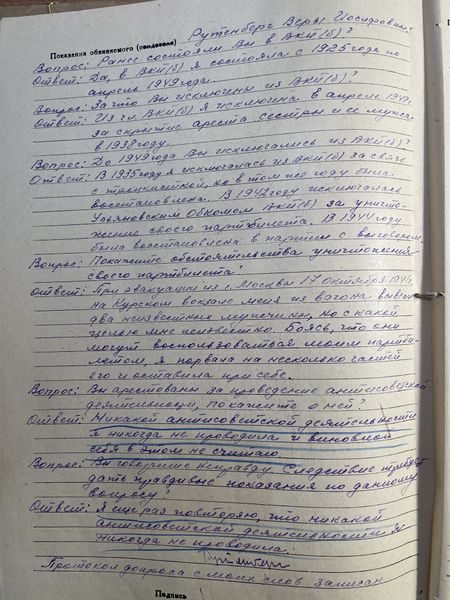 Рутенберг Веры Иосифовны:
Показания обвиняемого (свидетеля)
Вопрос: Ранее состояли Вы в ВКП(б)?
Ответ: Да, в ВКП(б) я состояла с 1925 года по
апрель 1949 года.
Вопрос: За что Вы исключены из ВКП(б)?
Ответ: Из чл. ВКП(б) я исключена в апреле 1949г.
за скрытие ареста сестры и ее мужа
в 1938 году.
Вопрос: До 1949 года Вы исключались из ВКП(б)?
Ответ: В 1935 году я исключалась из ВКП(б) за связь
с троцкисткой, но в том же году была
восстановлена. В 1942 году исключалась
Ульяновским Обкомом ВКП(б) за уничто-
жение своего партбилета. В 1944 году
была восстановлена в партии с выговором.
Вопрос: Покажите обстоятельства уничтожения
своего партбилета!
Ответ: При эвакуации из г. Москвы 17 октября 1941г.
на Курском вокзале меня из вагона вывели
два неизвестных мужчины, но с какой
целью мне неизвестно. Боясь, что они
могут воспользоваться моим партби-
летом, я порвала на несколько частей
его и оставила при себе.
Вопрос: Вы арестованы за проведение антисоветской
деятельности, покажите о ней?
Ответ: Никакой антисоветской деятельности
я никогда не проводила и виновной
себя в этом не считаю.
Вопрос: Вы говорите неправду. Следствие требует
дать правдивые показания по данному
вопросу?
Ответ: Я еще раз повторяю, что никакой
антисоветской деятельности я
никогда не проводила.
Рутенберг
Протокол допроса с моих слов записан
Подпись